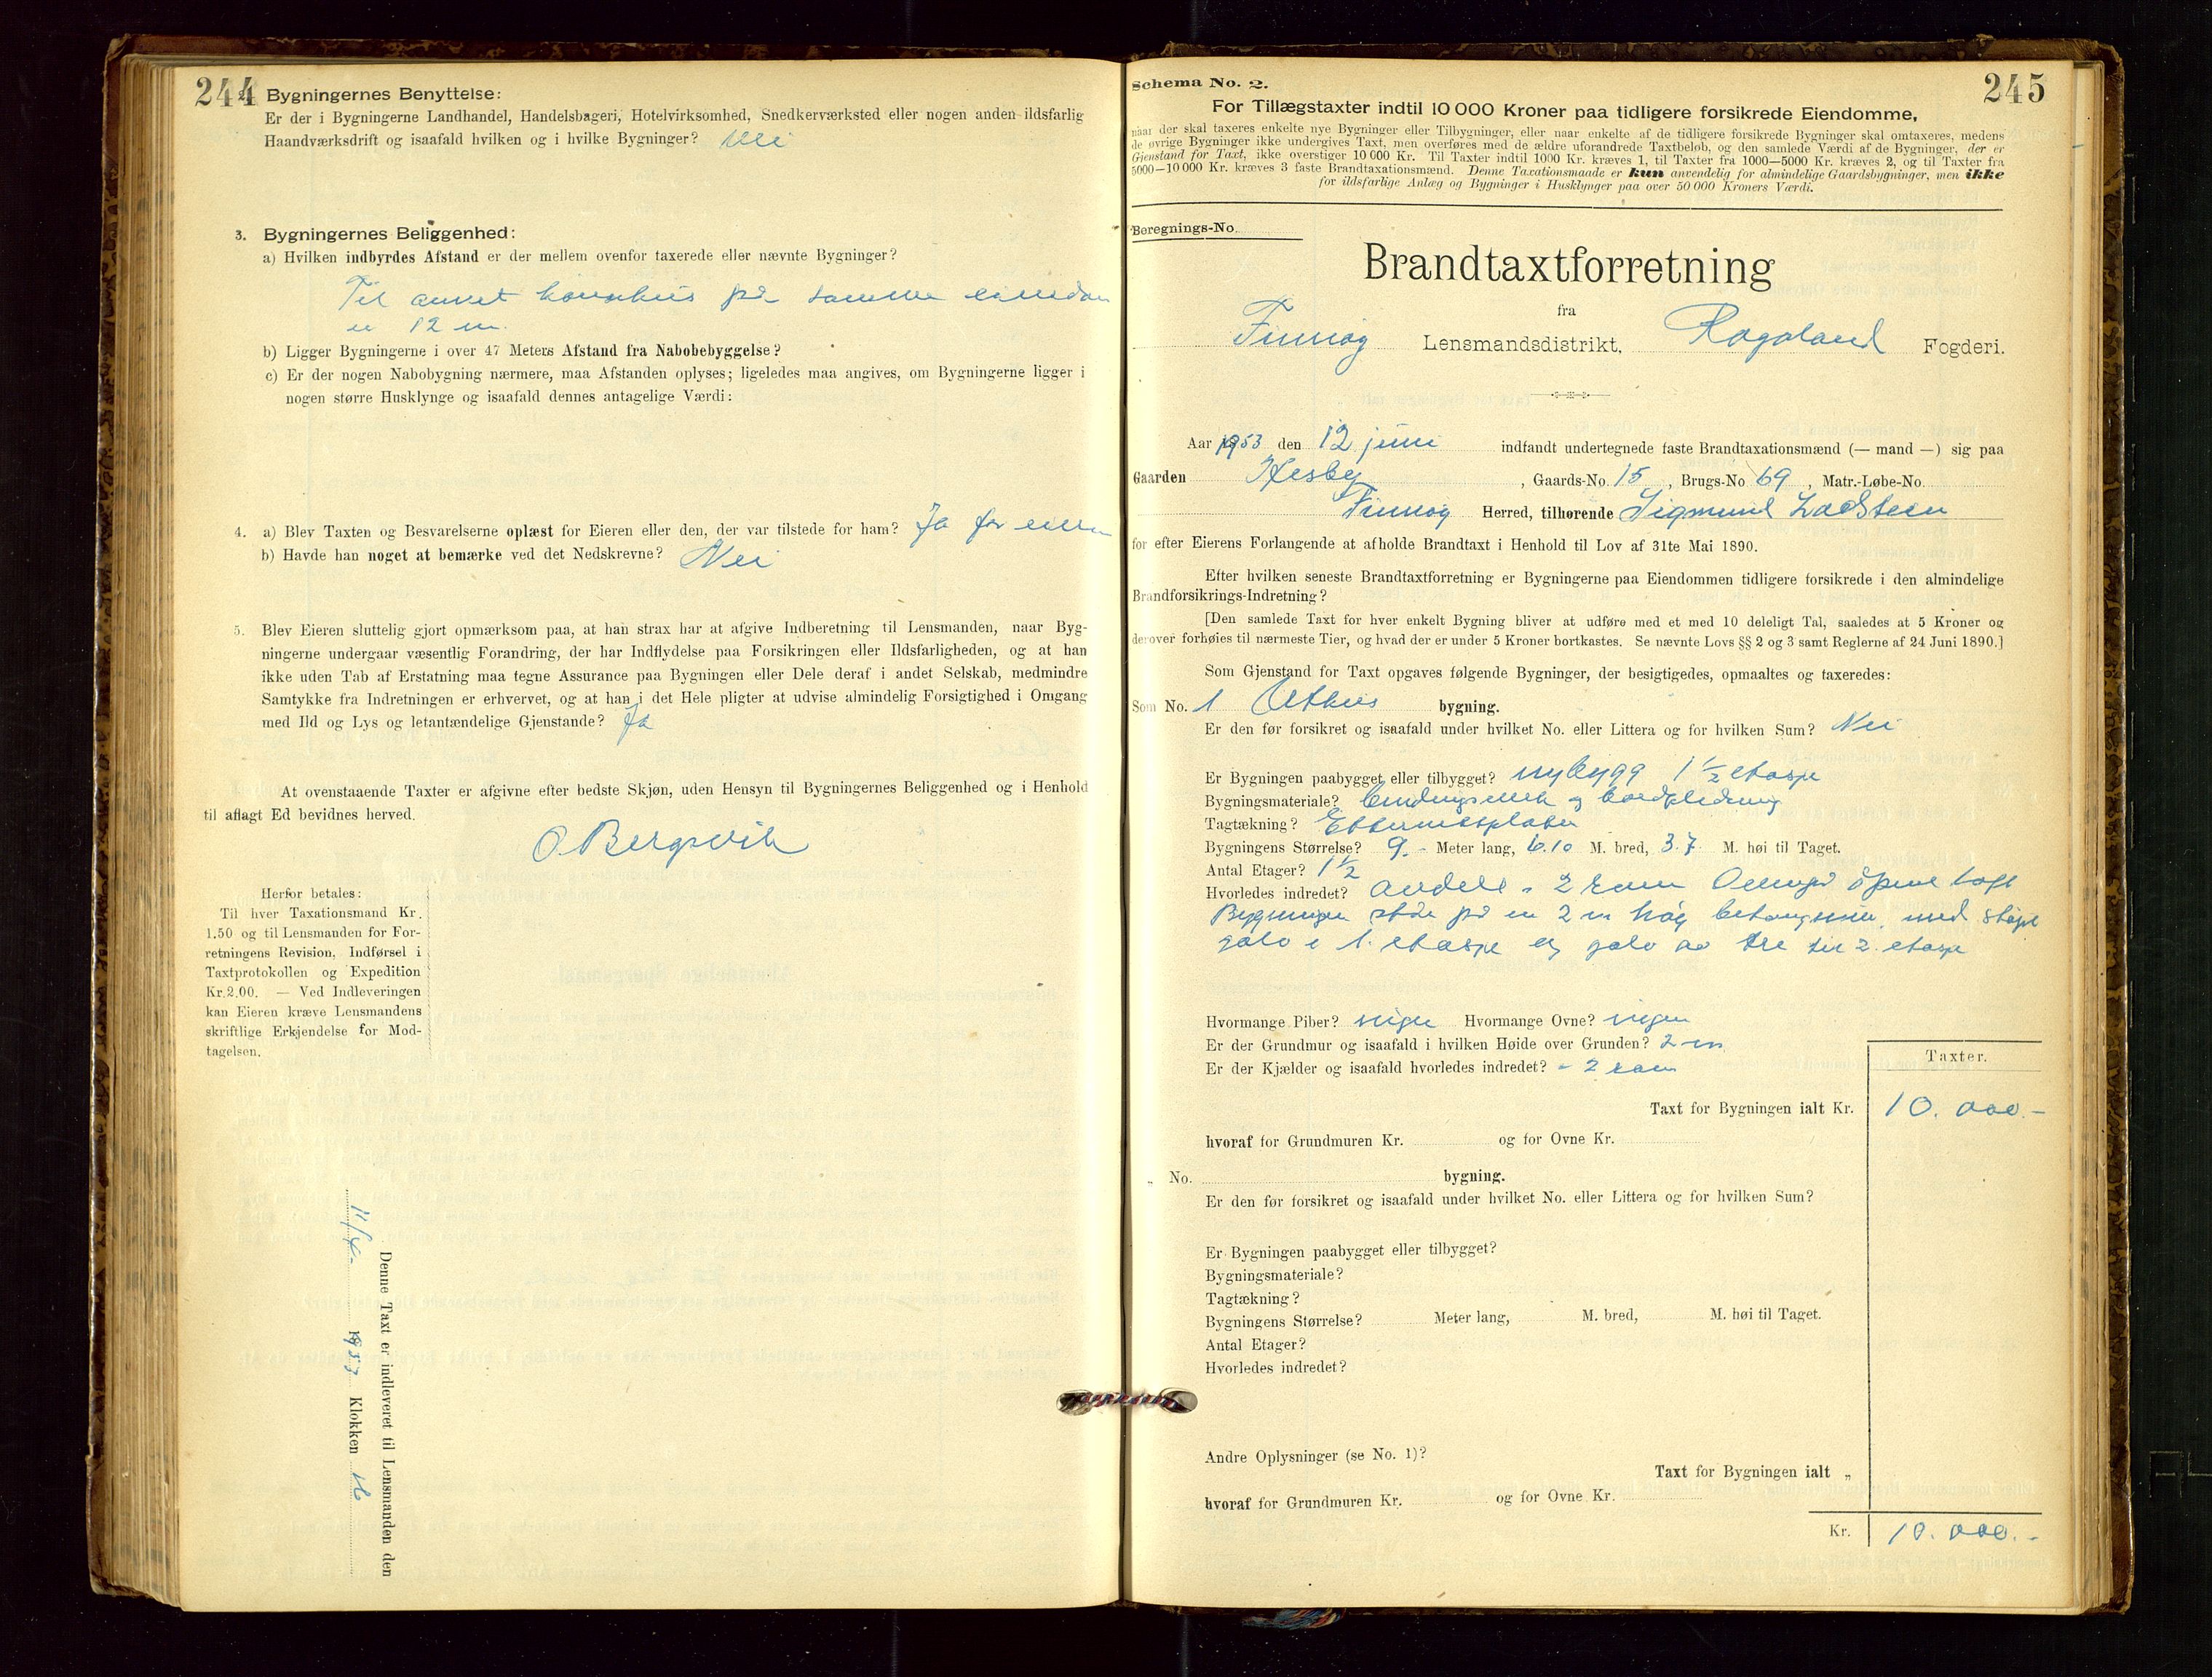 244
2. Bygningernes Benyttelse:
Er der i Bygningerne Landhandel, Handelsbageri, Hotelvirksomhed, Snedkerværksted eller nogen anden ildsfarlig
Haandværksdrift og isaafald hvilken og i hvilke Bygninger? Nei
3. Bygningernes Beliggenhed:
a) Hvilken indbyrdes Afstand er der mellem ovenfor taxerede eller nævnte Bygninger?
Til annet på samme eiendom
er 12 m.
b) Ligger Bygningerne i over 47 Meters Afstand fra Nabobebyggelse?
c) Er der nogen Nabobygning nærmere, maa Afstanden oplyses; ligeledes maa angives, om Bygningerne ligger i
nogen større Husklynge og isaafald dennes antagelige Værdi:
4. a) Blev Taxten og Besvarelserne oplæst for Eieren eller den, der var tilstede for ham? Ja for eieren
b) Havde han noget at bemærke ved det Nedskrevne? Nei
5. Blev Eieren sluttelig gjort opmærksom paa, at han strax har at afgive Indberetning til Lensmanden, naar Byg-
ningerne undergaar væsentlig Forandring, der har Indflydelse paa Forsikringen eller Ildsfarligheden, og at han
ikke uden Tab af Erstatning maa tegne Assurance paa Bygningen eller Dele deraf i andet Selskab, medmindre
Samtykke fra Indretningen er erhvervet, og at han i det Hele pligter at udvise almindelig Forsigtighed i Omgang
med Ild og Lys og letantændelige Gjenstande? Ja
At ovenstaaende Taxter er afgivne efter bedste Skjøn, uden Hensyn til Bygningernes Beliggenhed og i Henhold
til aflagt Ed bevidnes herved.
O. Bergsvik
Herfor betales:
Til hver Taxationsmand Kr.
1.50 og til Lensmanden for For-
retningens Revision, Indførsel i
Taxtprotokollen og Expedition
Kr. 2,00. — Ved Indleveringen
kan Eieren kræve Lensmandens
skriftlige Erkjendelse for Mod-
tagelsen.
Denne Taxt er indleveret til Lensmanden den
1953 Klokken
245
Schema No. 2.
For Tillægstaxter indtil 10 000 Kroner paa tidligere forsikrede Eiendomme,
naar der skal taxeres enkelte nye Bygninger eller Tilbygninger, eller naar enkelte af de tidligere forsikrede Bygninger skal omtaxeres, medens
de øvrige Bygninger ikke undergives Taxt, men overføres med de ældre uforandrede Taxtbeløb, og den samlede Værdi af de Bygninger, der er
Gjenstand for Taxt, ikke overstiger 10 000 Kr. Til Taxter indtil 1000 Kr. kræves 1, til Taxter fra 1000—5000 Kr. kræves 2, og til Taxter fra
5000—10 000 Kr. kræves 3 faste Brandtaxationsmænd. Denne Taxationsmaade er kun anvendelig for almindelige Gaardsbygninger, men ikke
for ildsfarlige Anlæg og Bygninger i Husklynger paa over 50 000 Kroners Værdi.
Beregnings-No.
Brandtaxtforretning
fra
Finnøy Lensmandsdistrikt, Rogaland Fogderi.
Aar 1953 den 12 juni indfandt undertegnede faste Brandtaxationsmænd (— mand —) sig paa
Gaarden Hesby, Gaards-No. 15, Brugs-No 69, Matr.-Løbe-No.
Finnøy Herred, tilhørende Sigmund Ladstein
for efter Eierens Forlangende at afholde Brandtaxt i Henhold til Lov af 31te Mai 1890.
Efter hvilken seneste Brandtaxtforretning er Bygningerne paa Eiendommen tidligere forsikrede i den almindelige
Brandforsikrings-Indretning?
[Den samlede Taxt for hver enkelt Bygning bliver at udføre med et med 10 deleligt Tal, saaledes at 5 Kroner og
derover forhøies til nærmeste Tier, og hvad der er under 5 Kroner bortkastes. Se nævnte Lovs §§ 2 og 3 samt Reglerne af 24 Juni 1890.]
Som Gjenstand for Taxt opgaves følgende Bygninger, der besigtigedes, opmaaltes og taxeredes:
Som No. 1 Uthus bygning.
Er den før forsikret og isaafald under hvilket No. eller Littera og for hvilken Sum? Nei
Er Bygningen paabygget eller tilbygget? nybygg 1 1/2 etasje
Bygningsmateriale? bindingsverk og bordkledning
Tagtækning? Etternitsplater
Bygningens Størrelse? 9.- Meter lang, 6.10 M. bred, 3.7 M. høi til Taget.
Antal Etager? 1 1/2
Hvorledes indredet? avdelt i 2 rom åpent loft
Bygningen står på en 2 m høg betongmur med støpt
golv i 1. etasje og golv av tre til 2. etasje
Hvormange Piber? ingen Hvormange Ovne? ingen
Er der Grundmur og isaafald i hvilken Høide over Grunden? 2 m
Er der Kjælder og isaafald hvorledes indredet? - 2 rom
Taxter.
Taxt for Bygningen ialt Kr. 10.000.-
hvoraf for Grundmuren Kr. og for Ovne Kr.
„ No. bygning.
Er den før forsikret og isaafald under hvilket No. eller Littera og for hvilken Sum?
Er Bygningen paabygget eller tilbygget?
Bygningsmateriale?
Tagtækning?
Bygningens Størrelse? Meter lang, M. bred, M. høi til Taget.
Antal Etager?
Hvorledes indredet?
Andre Oplysninger (se No. 1)?
Taxt for Bygningen ialt „
hvoraf for Grundmuren Kr. og for Ovne Kr.
Kr. 10.000.-